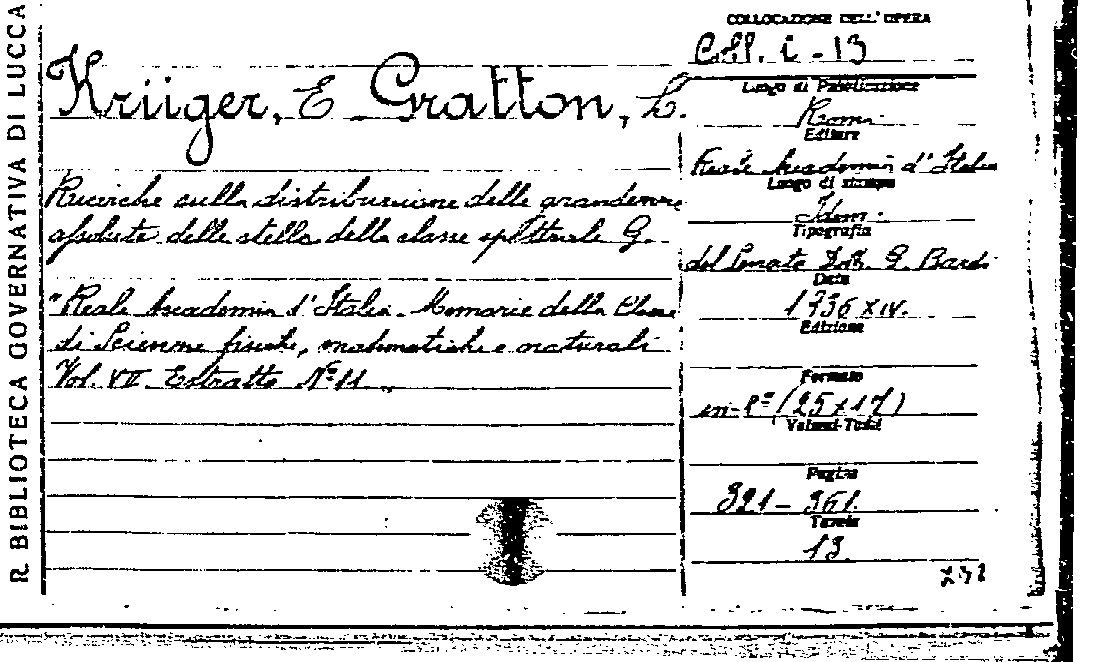 R. BIBLIOTECA GOVERNATIVA DI LUCCA
Krüger, E Gratton, L.
Ricerche sulla distribuzione delle grandezze
assolute delle stelle della classe spettrale G.
"Reale Accademia d'Italia. Memorie della Classe
di Scienze fisiche, matematiche e naturali
Vol. VII Estratto Nº 11 "
COLLOCAZIONE DELL'OPERA
Coll. C - 13
Luogo di Pubblicazione
Roma
Editore
Reale Accademia d'Italia
Luogo di stampa
Idem.
Tipografia
del Senato Dott. G. Bardi
Data
1936 XIV.
Edizione
Formato
in-8º (25 x 17)
Volumi-Tomi
Pagine
321 - 361.
Tavole
13.